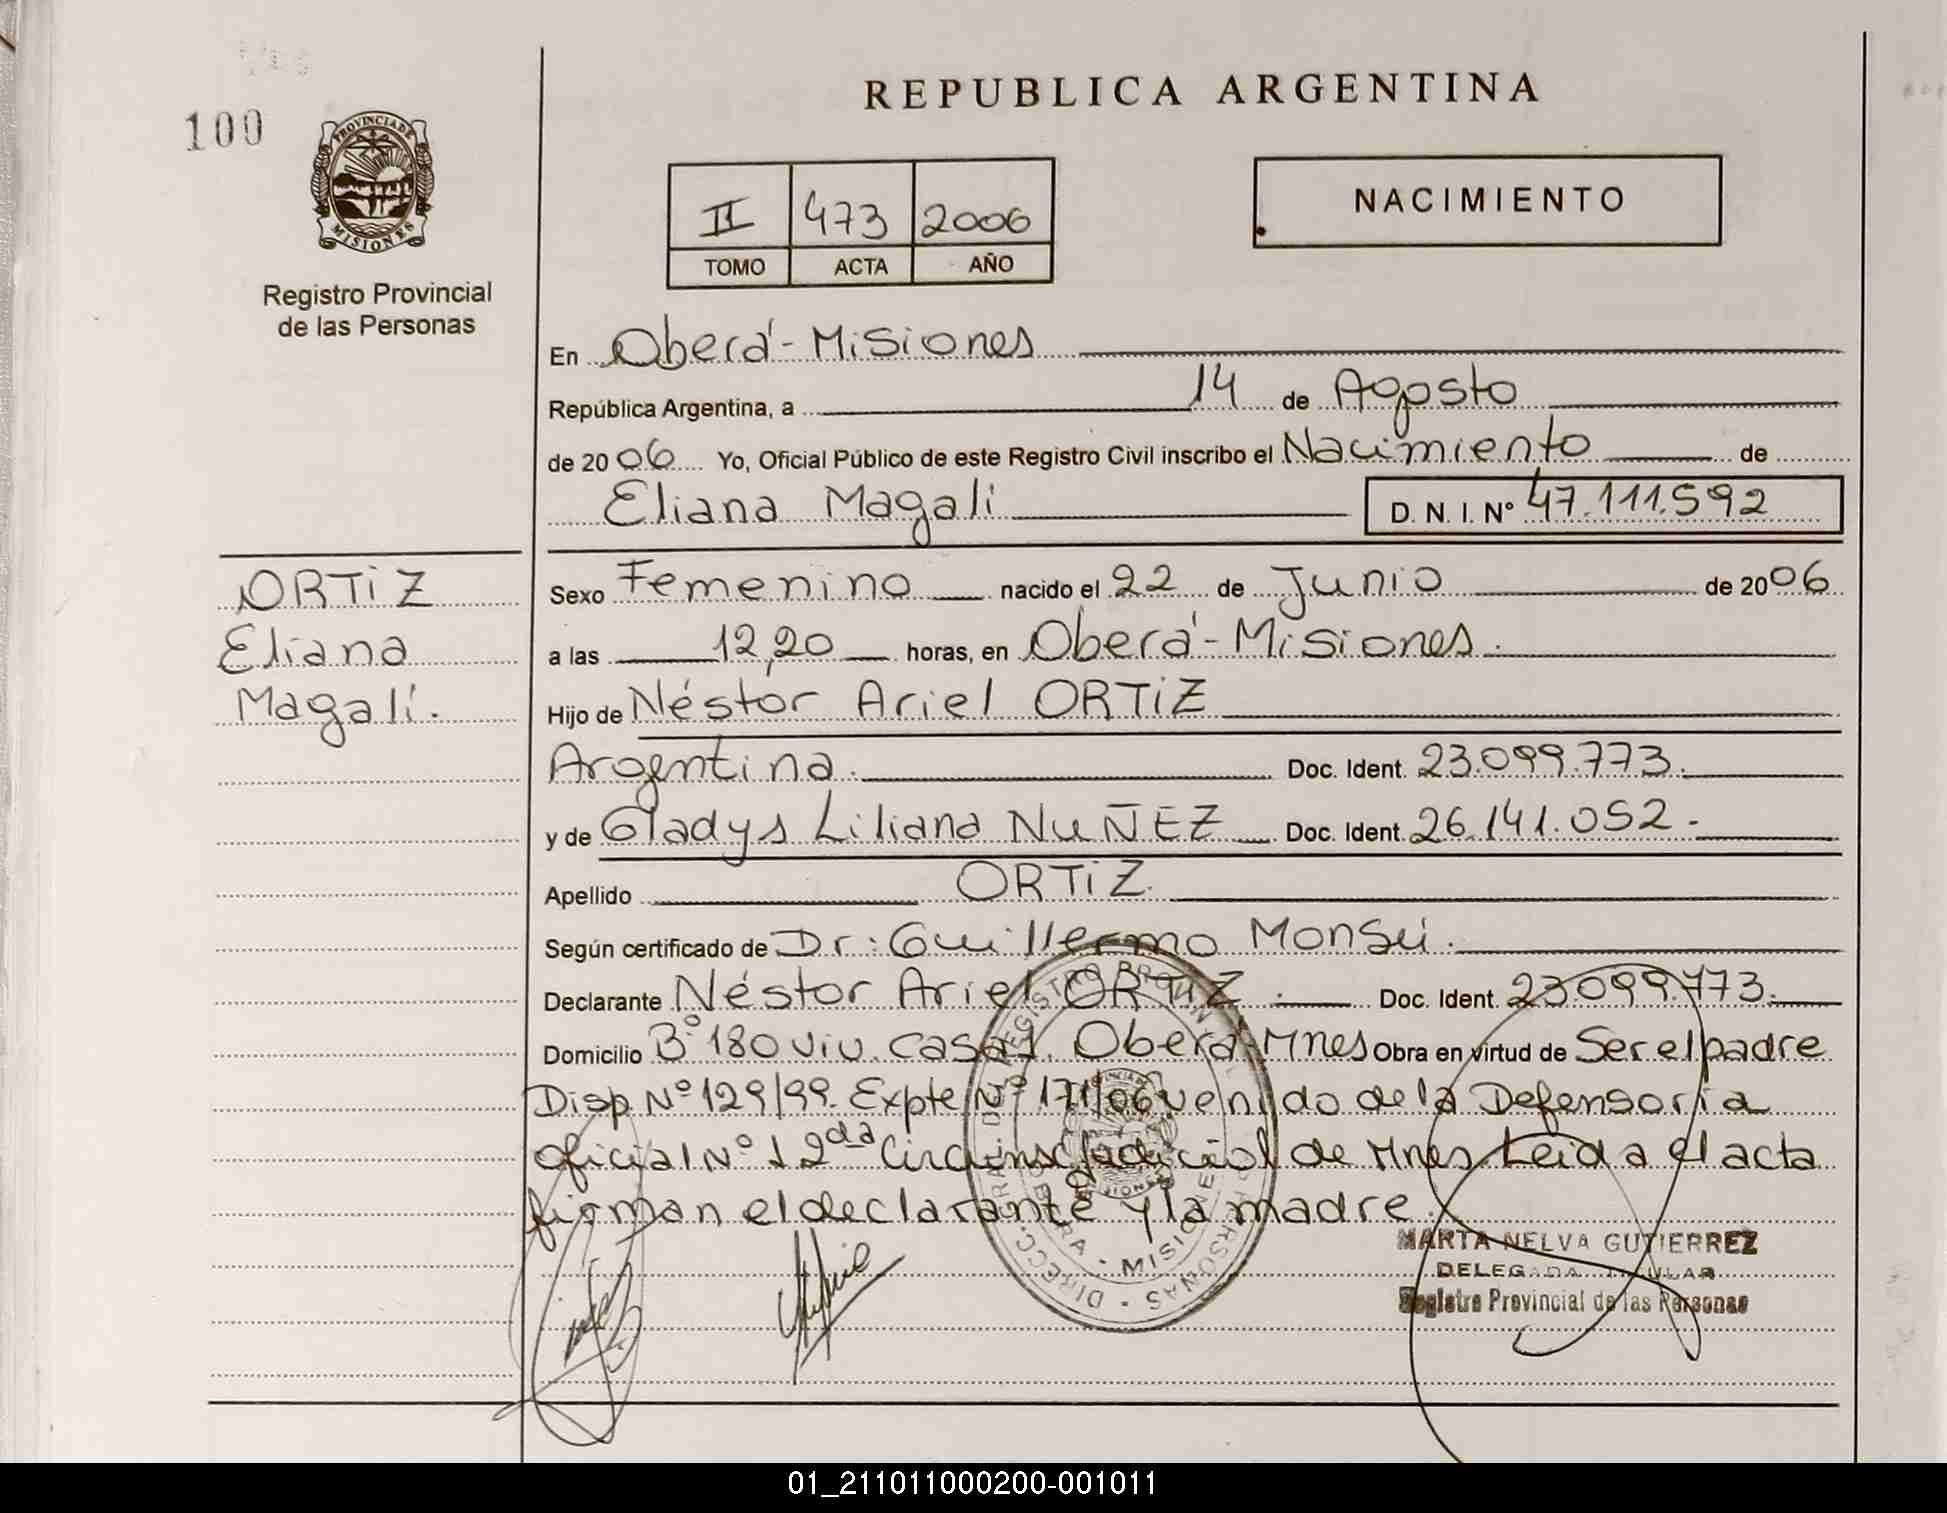 REPUBLICA ARGENTINA
100
PROVINCIA DE
MISIONES
Registro Provincial
de las Personas
II 473 2006
TOMO ACTA AÑO
NACIMIENTO
En Oberá - Misiones
República Argentina, a 14 de Agosto
de 2006 Yo, Oficial Público de este Registro Civil inscribo el Nacimiento de
Eliana Magali D. N. I. Nº 47.111.592
ORTiZ
Eliana
Magalí.
Sexo Femenino nacido el 22 de Junio de 2006
a las 12,20 horas, en Oberá - Misiones.
Hijo de Néstor Ariel ORTiZ
Argentina. Doc. Ident. 23.099.773.
y de Gladys Liliana NuÑEZ Doc. Ident. 26.141.052.-
Apellido ORTiZ.
Según certificado de Dr: Guillermo Monsú.
Declarante Néstor Ariel ORTiZ. Doc. Ident. 23.099.773.
Domicilio Bº 180 viv. casa 1. Oberá - Mnes Obra en virtud de Ser el padre
Disp Nº 129/99. Expte Nº 171/06 venido de la Defensoria
Oficial Nº 1 2da Circunsc Judicial de Mnes. Leida el acta
firman el declarante y la madre.
MARTA NELVA GUTIERREZ
DELEGADA TITULAR
Registro Provincial de las Personas
01_211011000200-001011